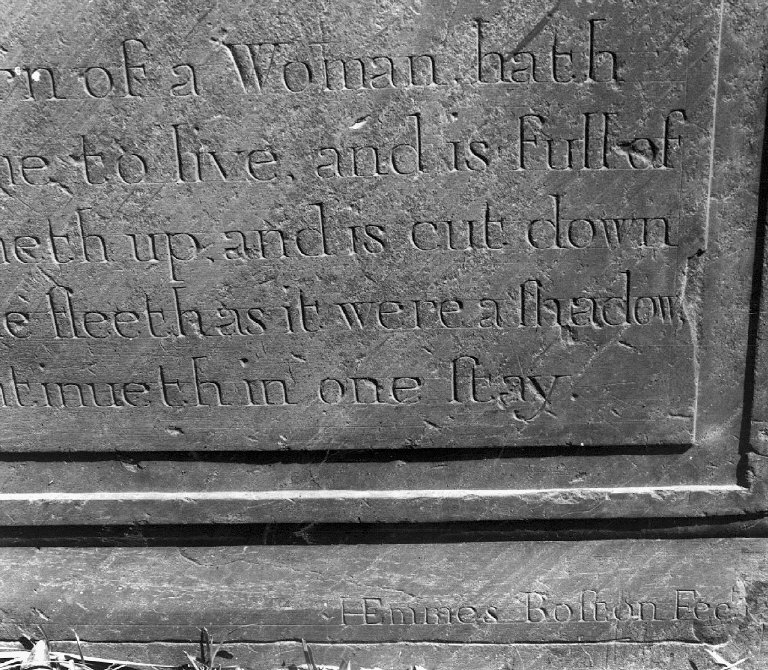 rn of a Woman hath
me to live, and is full of
meth up, and is cut down
he fleeth as it were a ſhadow,
ntinueth in one ſtay.
H Emmes Boſton Fecit